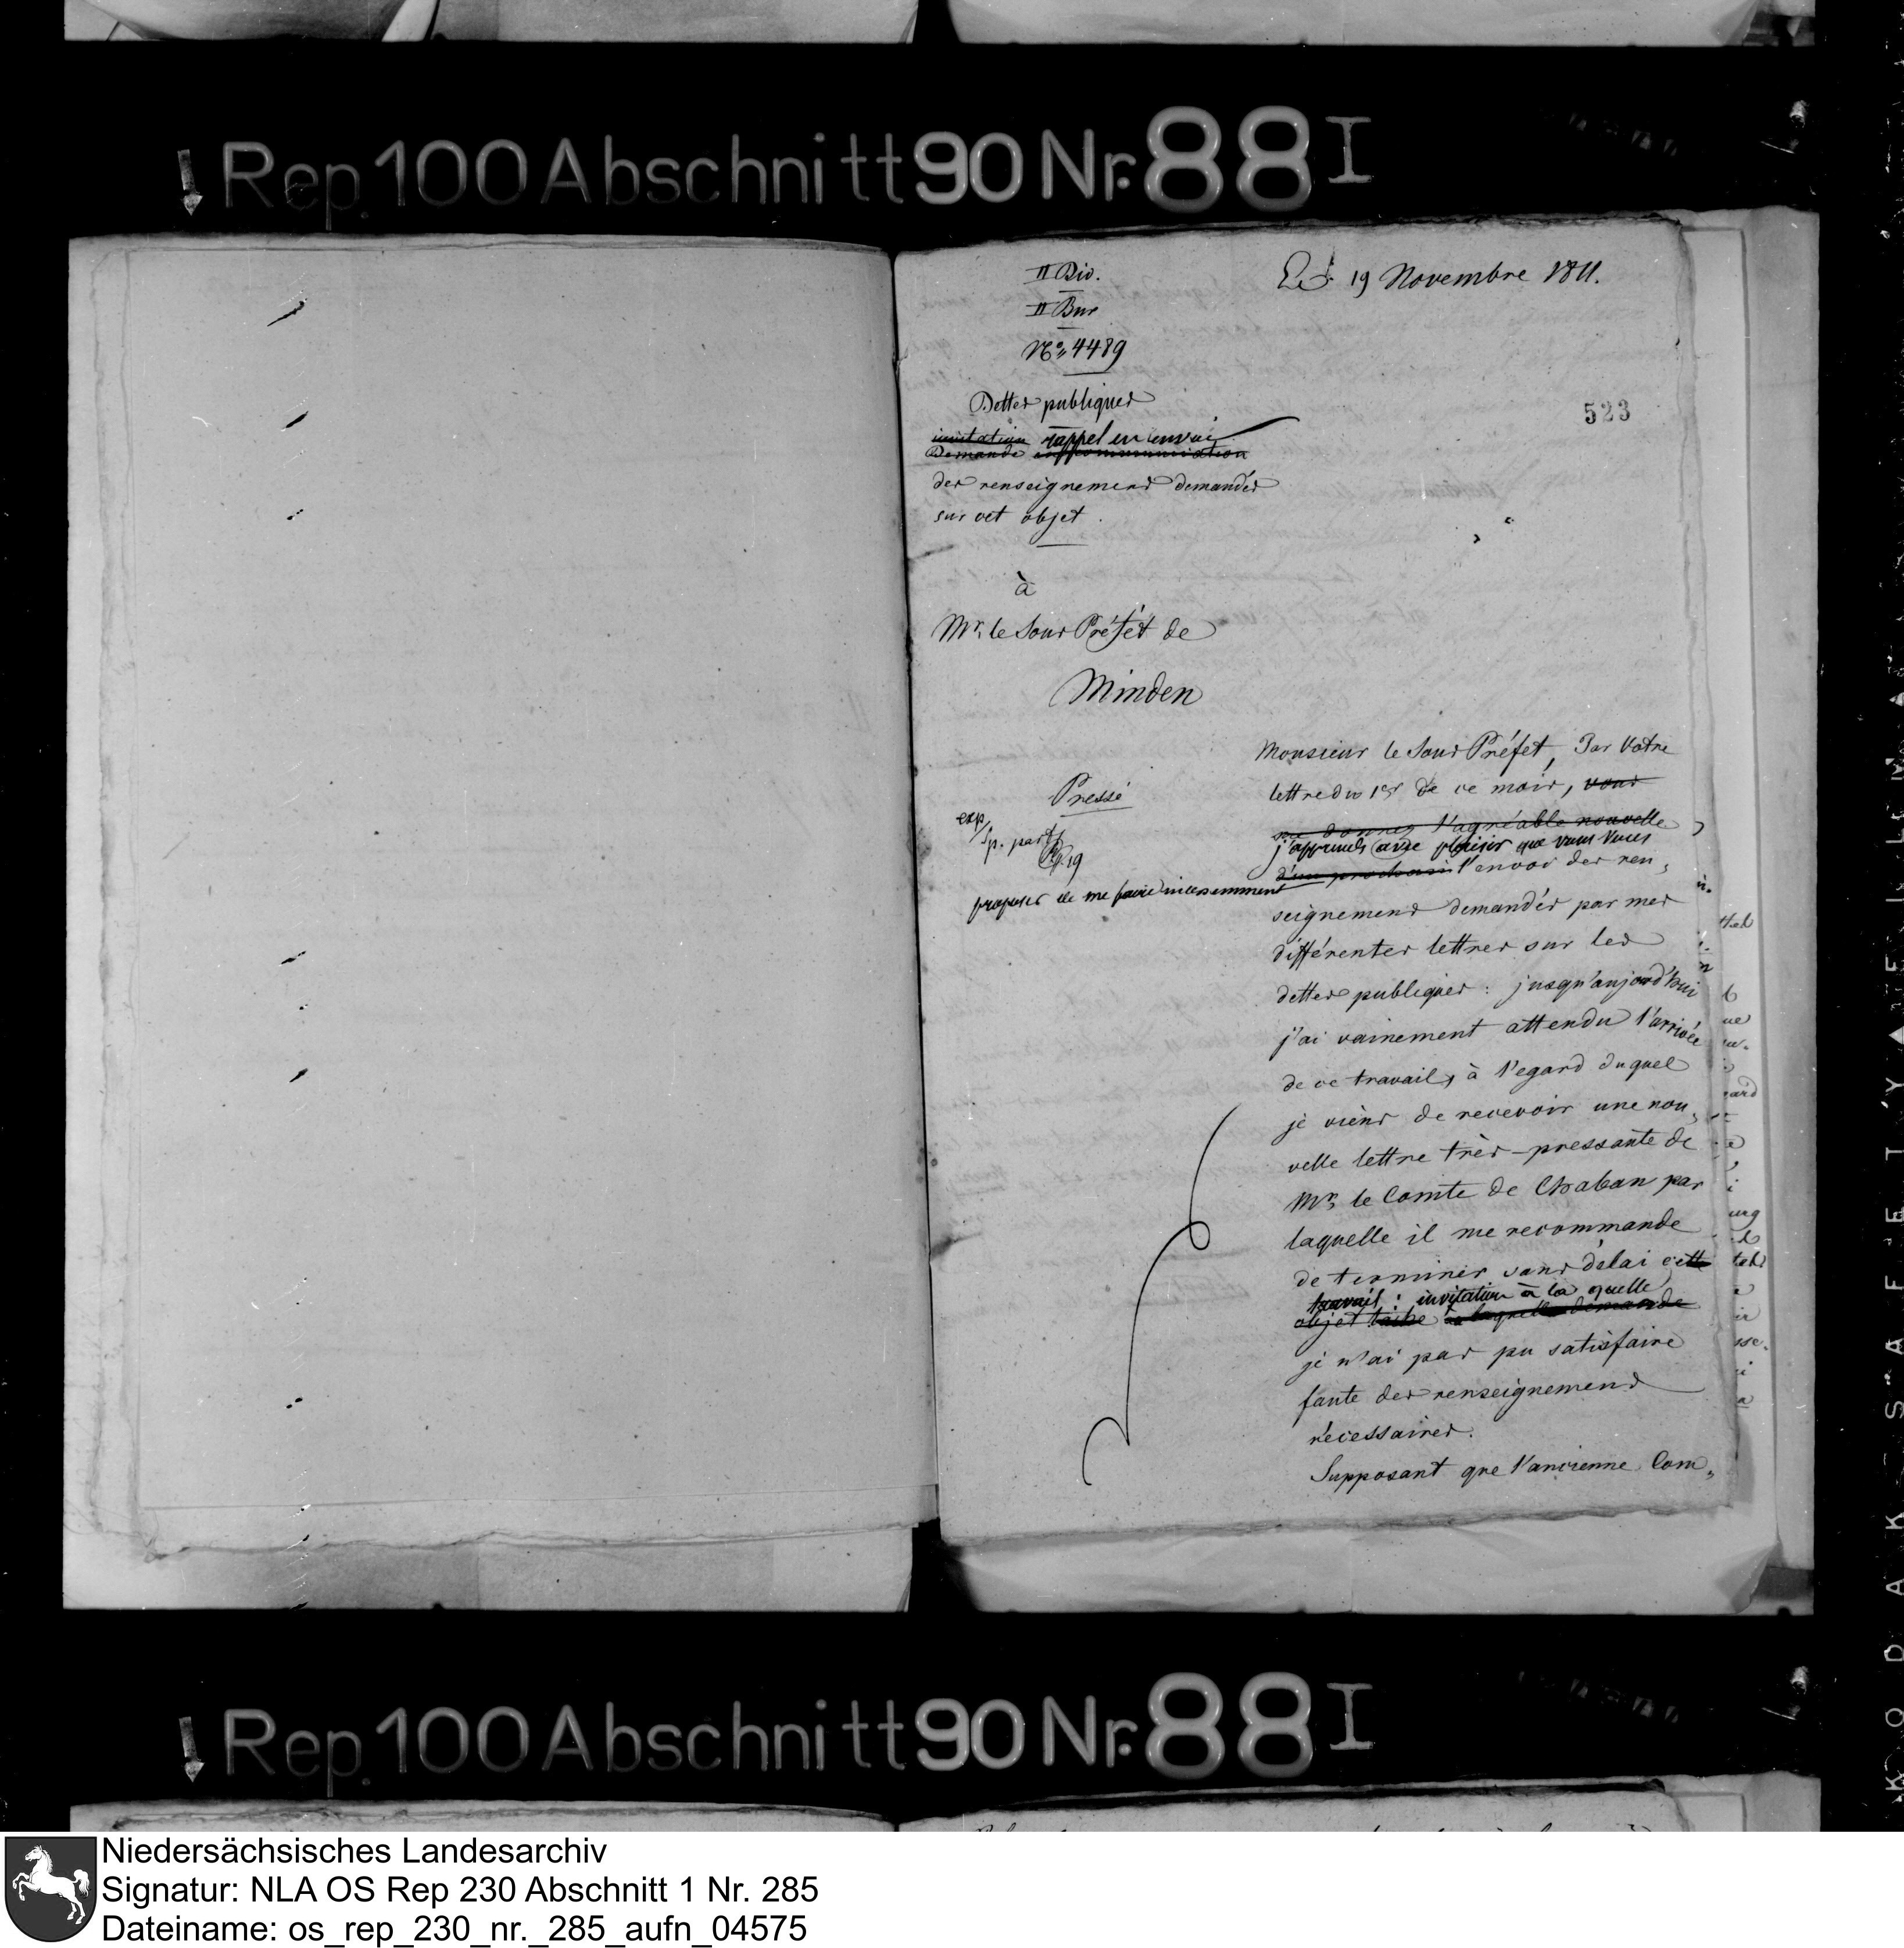 Rep. 100 Abschnitt 90 Nr. 88 I
II Div.
Le 19 Novembre 1811.
II Bur
No. 4489
523
Dettes publiques
invitation rappel en envoi
Demande communication
des renseignemens demandés
sur cet objet.
à
Mr. le Sous Préfet de
Minden
Monsieur le Sous Préfet, Par Votre
lettre du 1er de ce mois, vous
Pressé
exp.
me donnez l'agréable nouvelle
j'apprends avec plaisir que vous vous
p. part
19
proposez de me faire incessamment
d'un prochain l'envoi des ren,
seignemens demandés par mes
différentes lettres sur les
dettes publiques: jusqu'aujourd'hui
j'ai vainement attendu l'arrivée
de ce travail, à l'egard duquel
je viens de recevoir une nou,
velle lettre très-pressante de
Mr. le Comte de Chaban par
laquelle il me recommande
de terminer sans délai cette
travail: invitation à la quelle
objet tache à laquelle demande
je n'ai pas pu satisfaire
faute des renseignemens
nécessaires.
Supposant que l'ancienne Com,
Rep. 100 Abschnitt 90 Nr. 88 I
KODAK SAFETY
Niedersächsisches Landesarchiv
Signatur: NLA OS Rep 230 Abschnitt 1 Nr. 285
Dateiname: os_rep_230_nr._285_aufn_04575